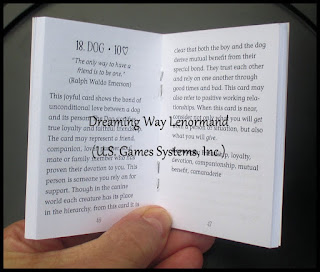 18. DOG • 10♡
"The only way to have a
friend is to be one."
(Ralph Waldo Emerson)
This joyful card shows the bond of
unconditional love between a dog
and its person. The Dog
true loyalty and faithful friends
The card may represent a friend,
companion,
mate or family member who has
proven their devotion to you. This
person is someone you rely on for
support. Though in the canine
world each creature has its place
in the hierarchy, from this card it is
46
clear that both the boy and the dog
derive mutual benefit from their
special bond. They trust each other
and rely on one another through
good times and bad. This card may
also refer to positive working rela-
tionships. When this card is near,
consider not only what you will get
from a person or situation, but also
what you will give.
loyalty,
devotion, companionship, mutual
benefit, camaraderie
47
Dreaming Way Lenormand
(U.S. Games Systems, Inc.)